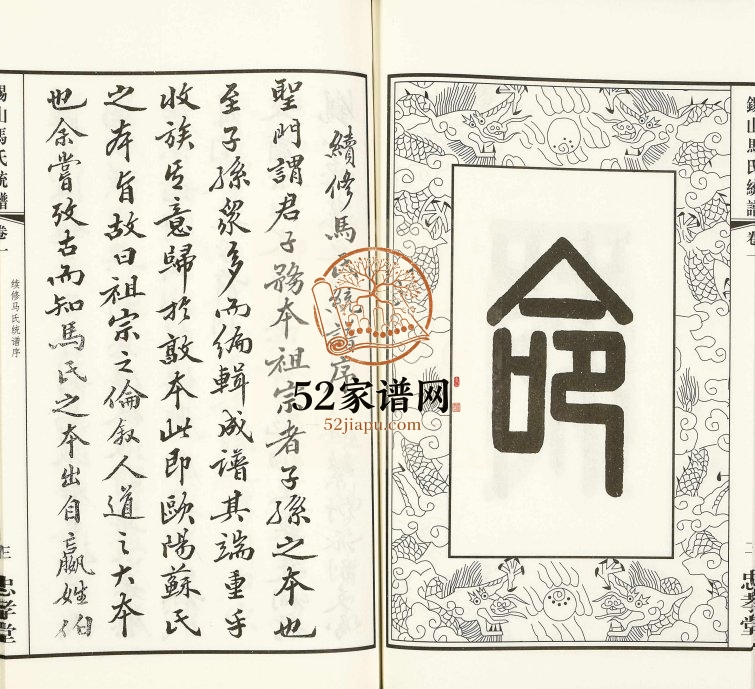 錫山馬氏統譜
卷一
二
忠孝堂
命
續修馬氏統譜序
聖門謂君子務本祖宗者子孫之本也
至子孫眾多而編輯成譜其端重乎
收族百意歸於敦本此即歐陽蘇氏
之本旨故曰祖宗之倫敘人道之大本
也余嘗攷古而知馬氏之本出自嬴姓伯
錫山馬氏統譜
卷一
续修马氏统谱序
三
忠孝堂
52家谱网
52jiapu.com